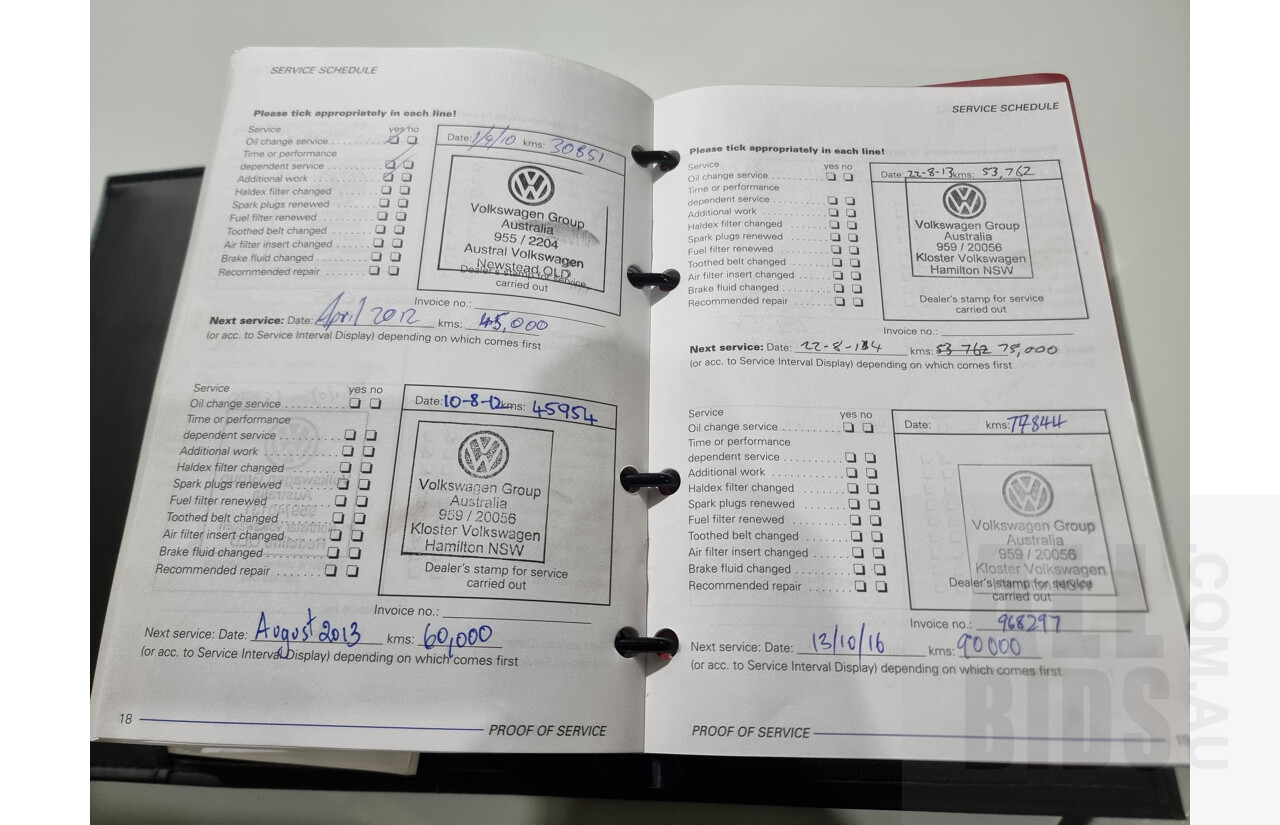 SERVICE SCHEDULE
Please tick appropriately in each line!
Service yes no
Oil change service
Time or performance
dependent service
Additional work
Haldex filter changed
Spark plugs renewed
Fuel filter renewed
Toothed belt changed
Air filter insert changed
Brake fluid changed
Recommended repair
Date: 1/9/10 kms: 30851
Volkswagen Group
Australia
955 / 2204
Austral Volkswagen
Newstead QLD
Dealer's stamp for service
carried out
Invoice no.:
Next service: Date: April 2012 kms: 45,000
(or acc. to Service Interval Display) depending on which comes first
Service yes no
Oil change service
Time or performance
dependent service
Additional work
Haldex filter changed
Spark plugs renewed
Fuel filter renewed
Toothed belt changed
Air filter insert changed
Brake fluid changed
Recommended repair
Date: 10-8-12 kms: 45954
Volkswagen Group
Australia
959 / 20056
Kloster Volkswagen
Hamilton NSW
Dealer's stamp for service
carried out
Invoice no.:
Next service: Date: August 2013 kms: 60,000
(or acc. to Service Interval Display) depending on which comes first
18
PROOF OF SERVICE
SERVICE SCHEDULE
Please tick appropriately in each line!
Service yes no
Oil change service
Time or performance
dependent service
Additional work
Haldex filter changed
Spark plugs renewed
Fuel filter renewed
Toothed belt changed
Air filter insert changed
Brake fluid changed
Recommended repair
Date: 22-8-13 kms: 53,762
Volkswagen Group
Australia
959 / 20056
Kloster Volkswagen
Hamilton NSW
Dealer's stamp for service
carried out
Invoice no.:
Next service: Date: 22-8-14 kms: 53 762 75,000
(or acc. to Service Interval Display) depending on which comes first
Service yes no
Oil change service
Time or performance
dependent service
Additional work
Haldex filter changed
Spark plugs renewed
Fuel filter renewed
Toothed belt changed
Air filter insert changed
Brake fluid changed
Recommended repair
Date: kms: 77844
Volkswagen Group
Australia
959 / 20056
Kloster Volkswagen
Hamilton NSW
Dealer's stamp for service
carried out
Invoice no.: 968297
Next service: Date: 13/10/16 kms: 90000
(or acc. to Service Interval Display) depending on which comes first
PROOF OF SERVICE
19
ALL
BIDS
.COM.AU